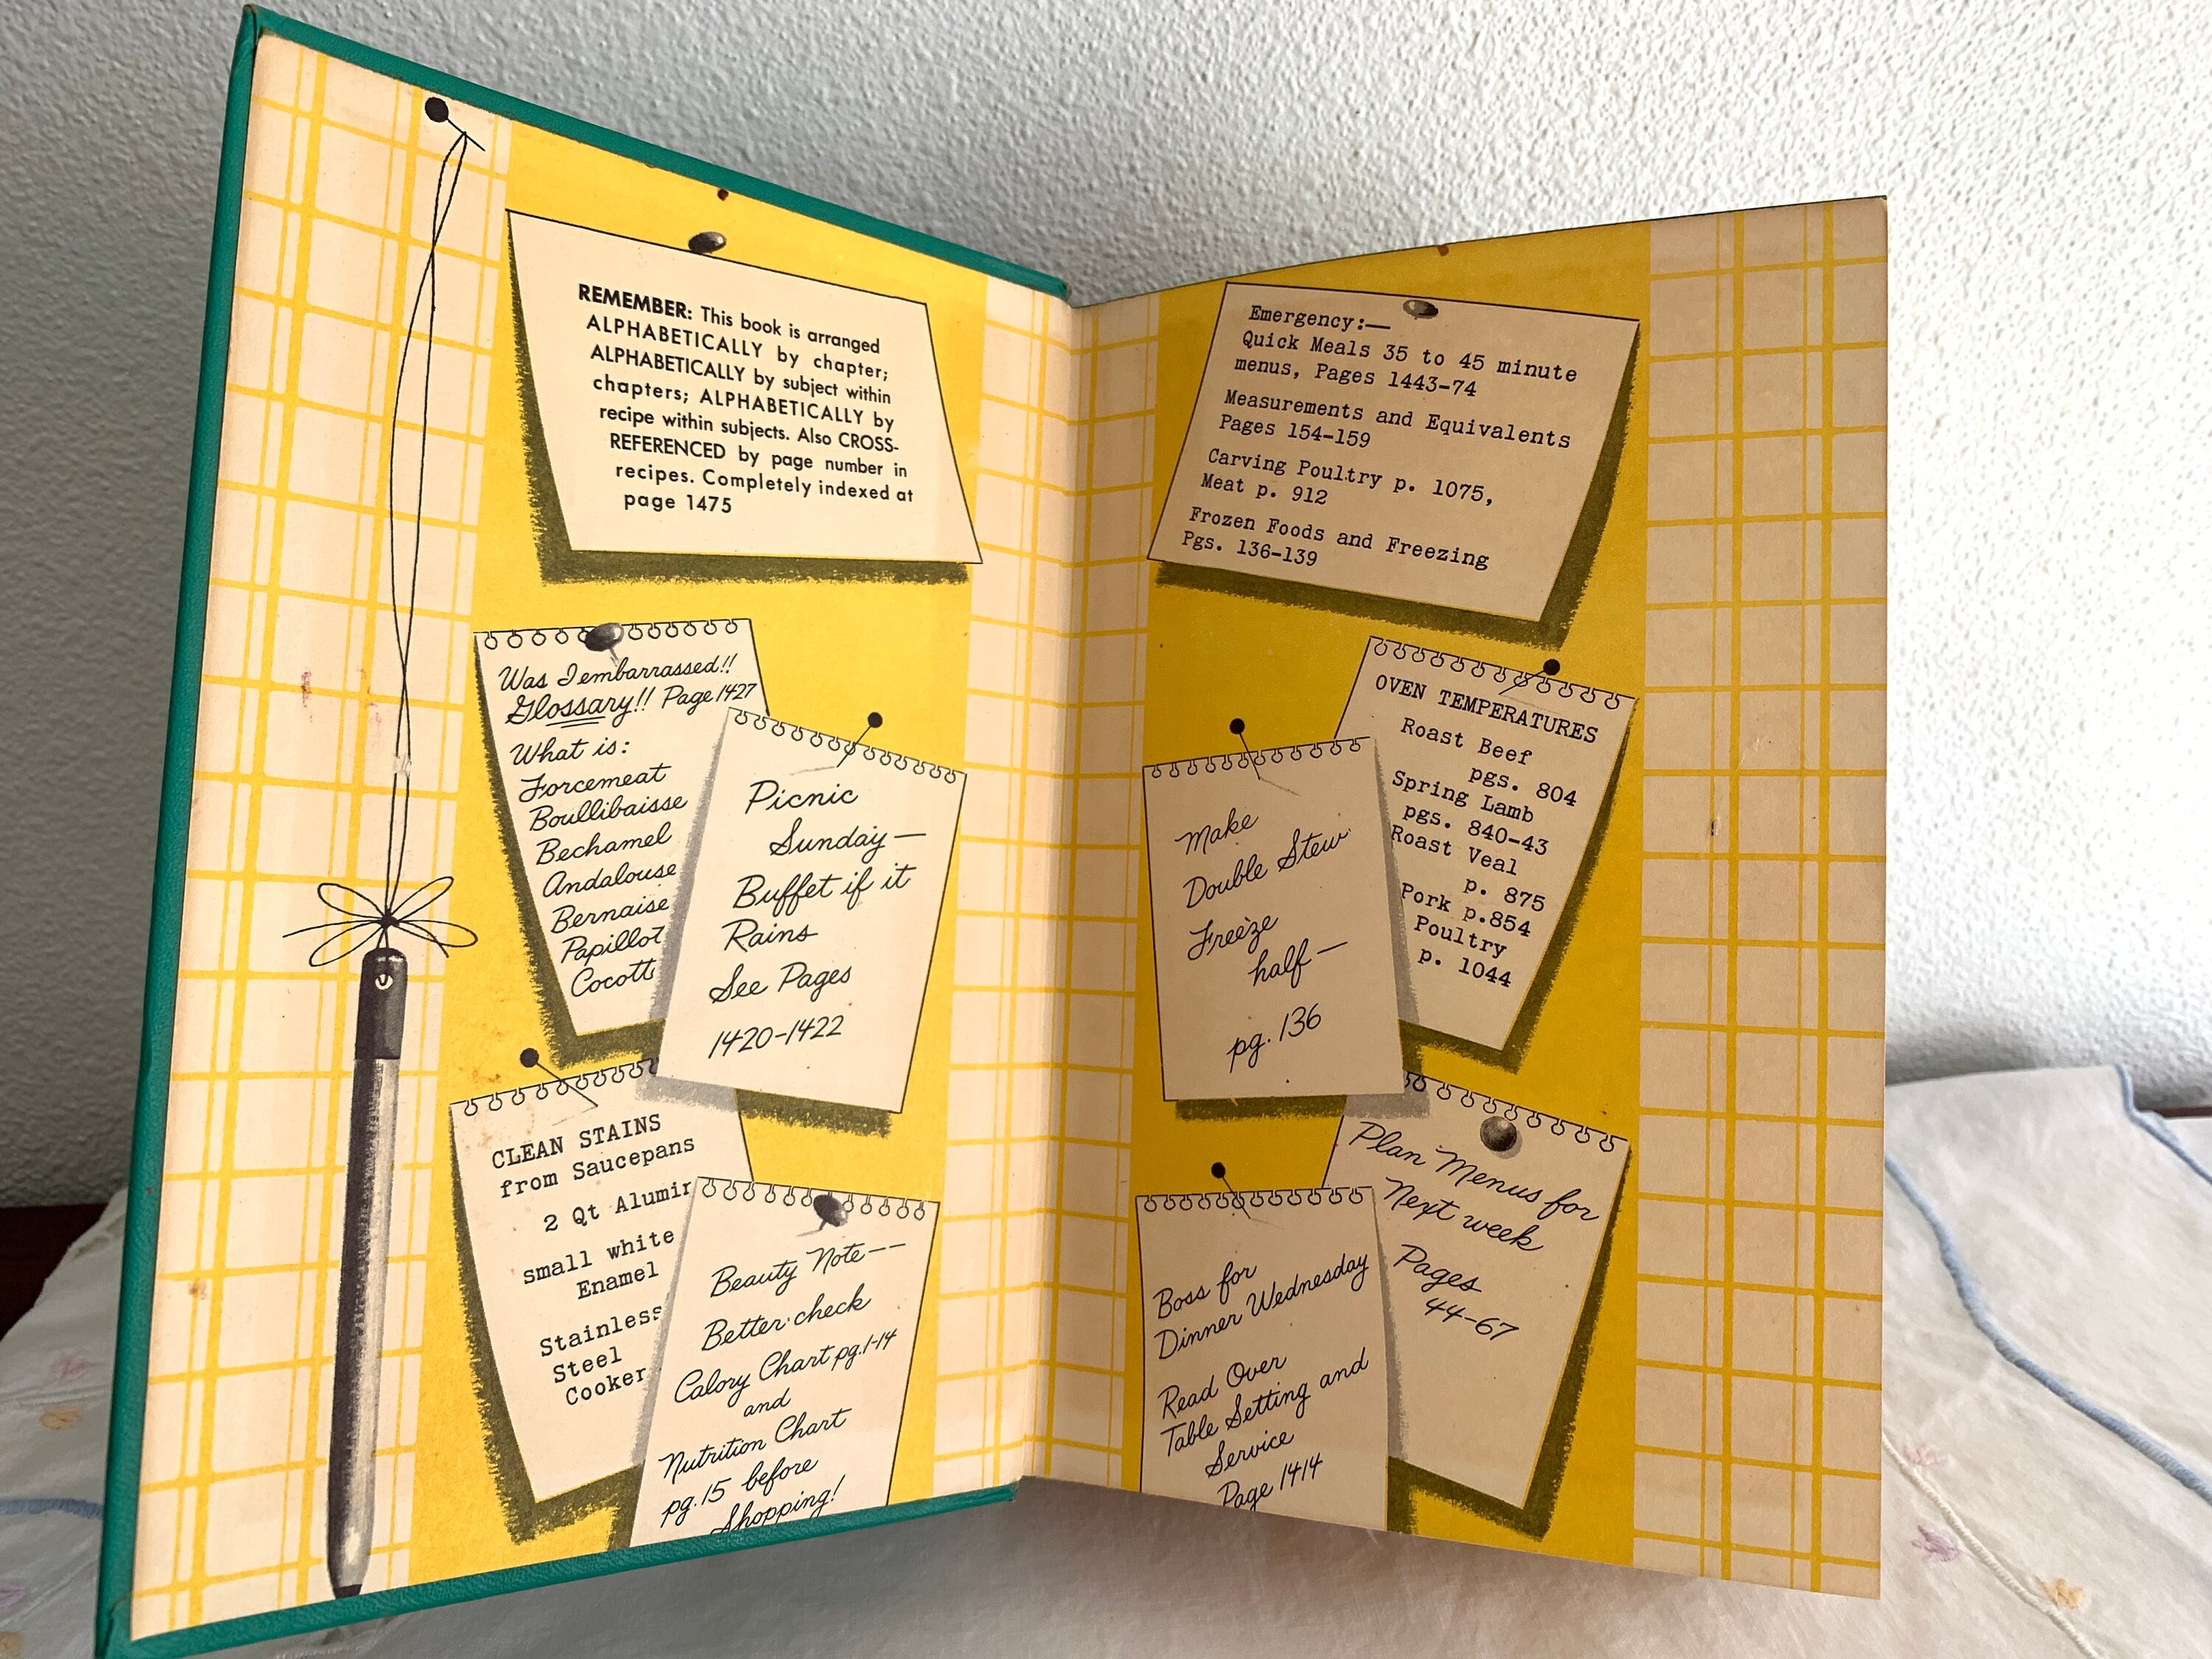 REMEMBER: This book is arranged
ALPHABETICALLY by chapter;
ALPHABETICALLY by subject within
chapters; ALPHABETICALLY by
recipe within subjects. Also CROSS-
REFERENCED by page number in
recipes. Completely indexed at
page 1475
Was I embarrassed!!
Glossary!! Page 1427
What is:
Forcemeat
Boullibaisse
Bechamel
Andalouse
Bernaise
Papillot
Cocott
Picnic
Sunday—
Buffet if it
Rains
See Pages
1420-1422
CLEAN STAINS
from Saucepans
2 Qt Alumin
small white
Enamel
Stainless
Steel
Cooker
Beauty Note--
Better check
Calory Chart pg.1-14
and
Nutrition Chart
pg.15 before
Shopping!
Emergency:—
Quick Meals 35 to 45 minute
menus, Pages 1443-74
Measurements and Equivalents
Pages 154-159
Carving Poultry p. 1075,
Meat p. 912
Frozen Foods and Freezing
Pgs. 136-139
OVEN TEMPERATURES
Roast Beef
pgs. 804
Spring Lamb
pgs. 840-43
Roast Veal
p. 875
Pork p.854
Poultry
p. 1044
Make
Double Stew
Freeze
half—
pg. 136
Plan Menus for
Next week
Pages
44-67
Boss for
Dinner Wednesday
Read Over
Table Setting and
Service
Page 1414